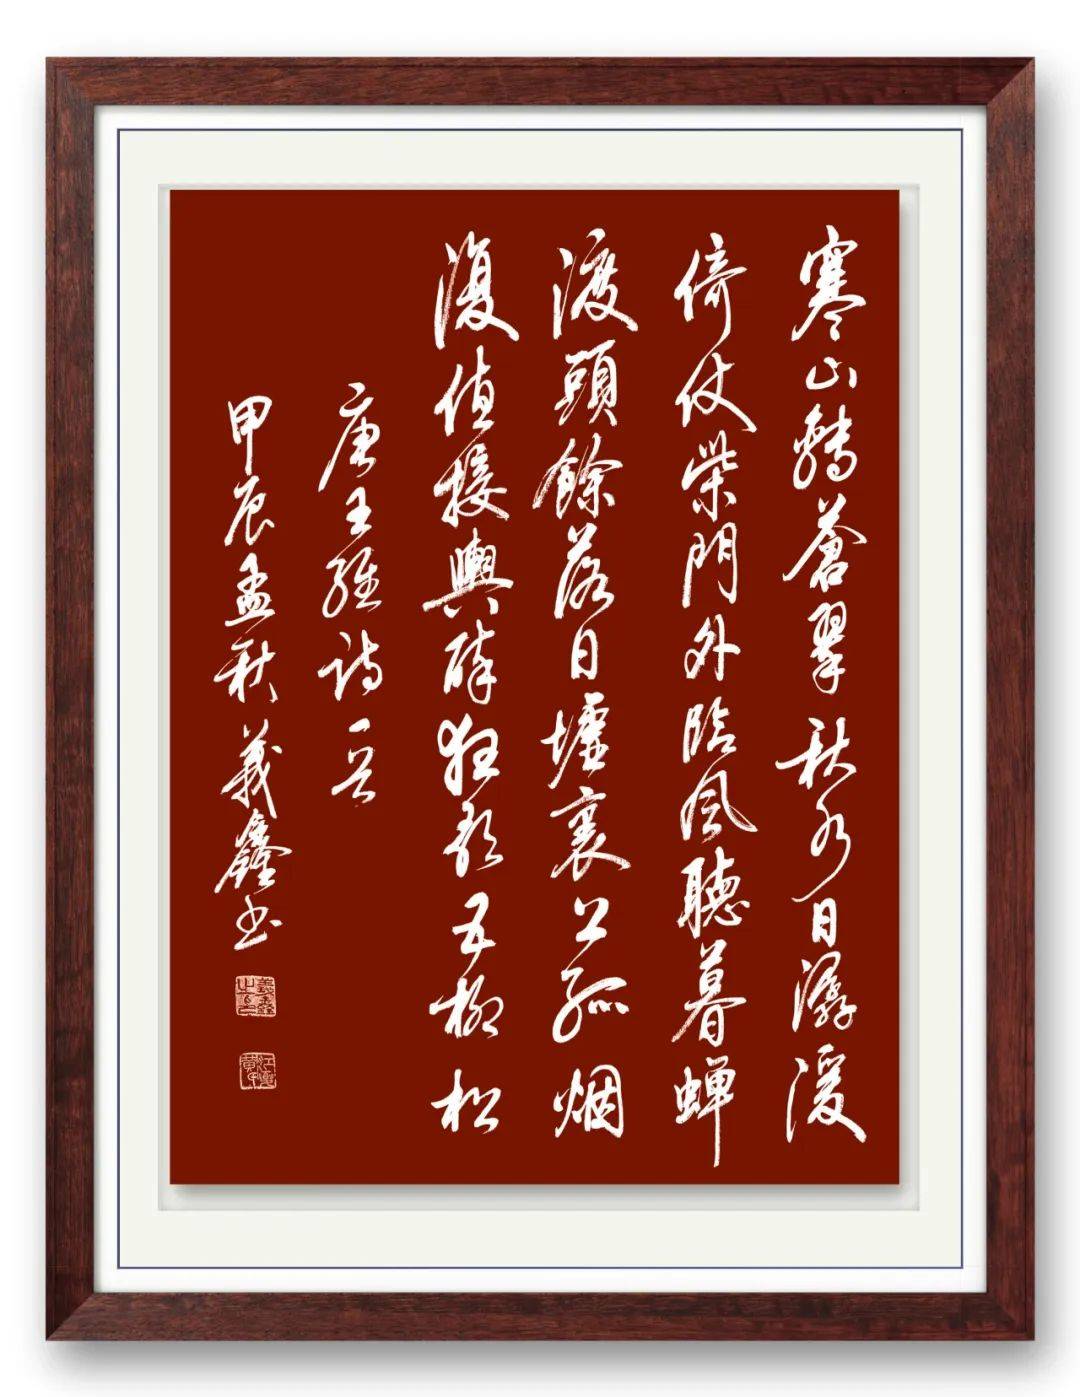 寒山轉蒼翠秋水日潺湲
倚仗柴門外臨風聽暮蝉
渡頭餘落日墟裏上孤烟
復值接輿醉狂歌五柳松
唐王維詩一首
甲辰孟秋義鑫書
義鑫之印